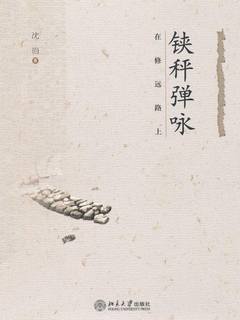 铗秤弹咏
在修远路上
沈
北京大学出版社
PEKING UNIVERSITY PRESS